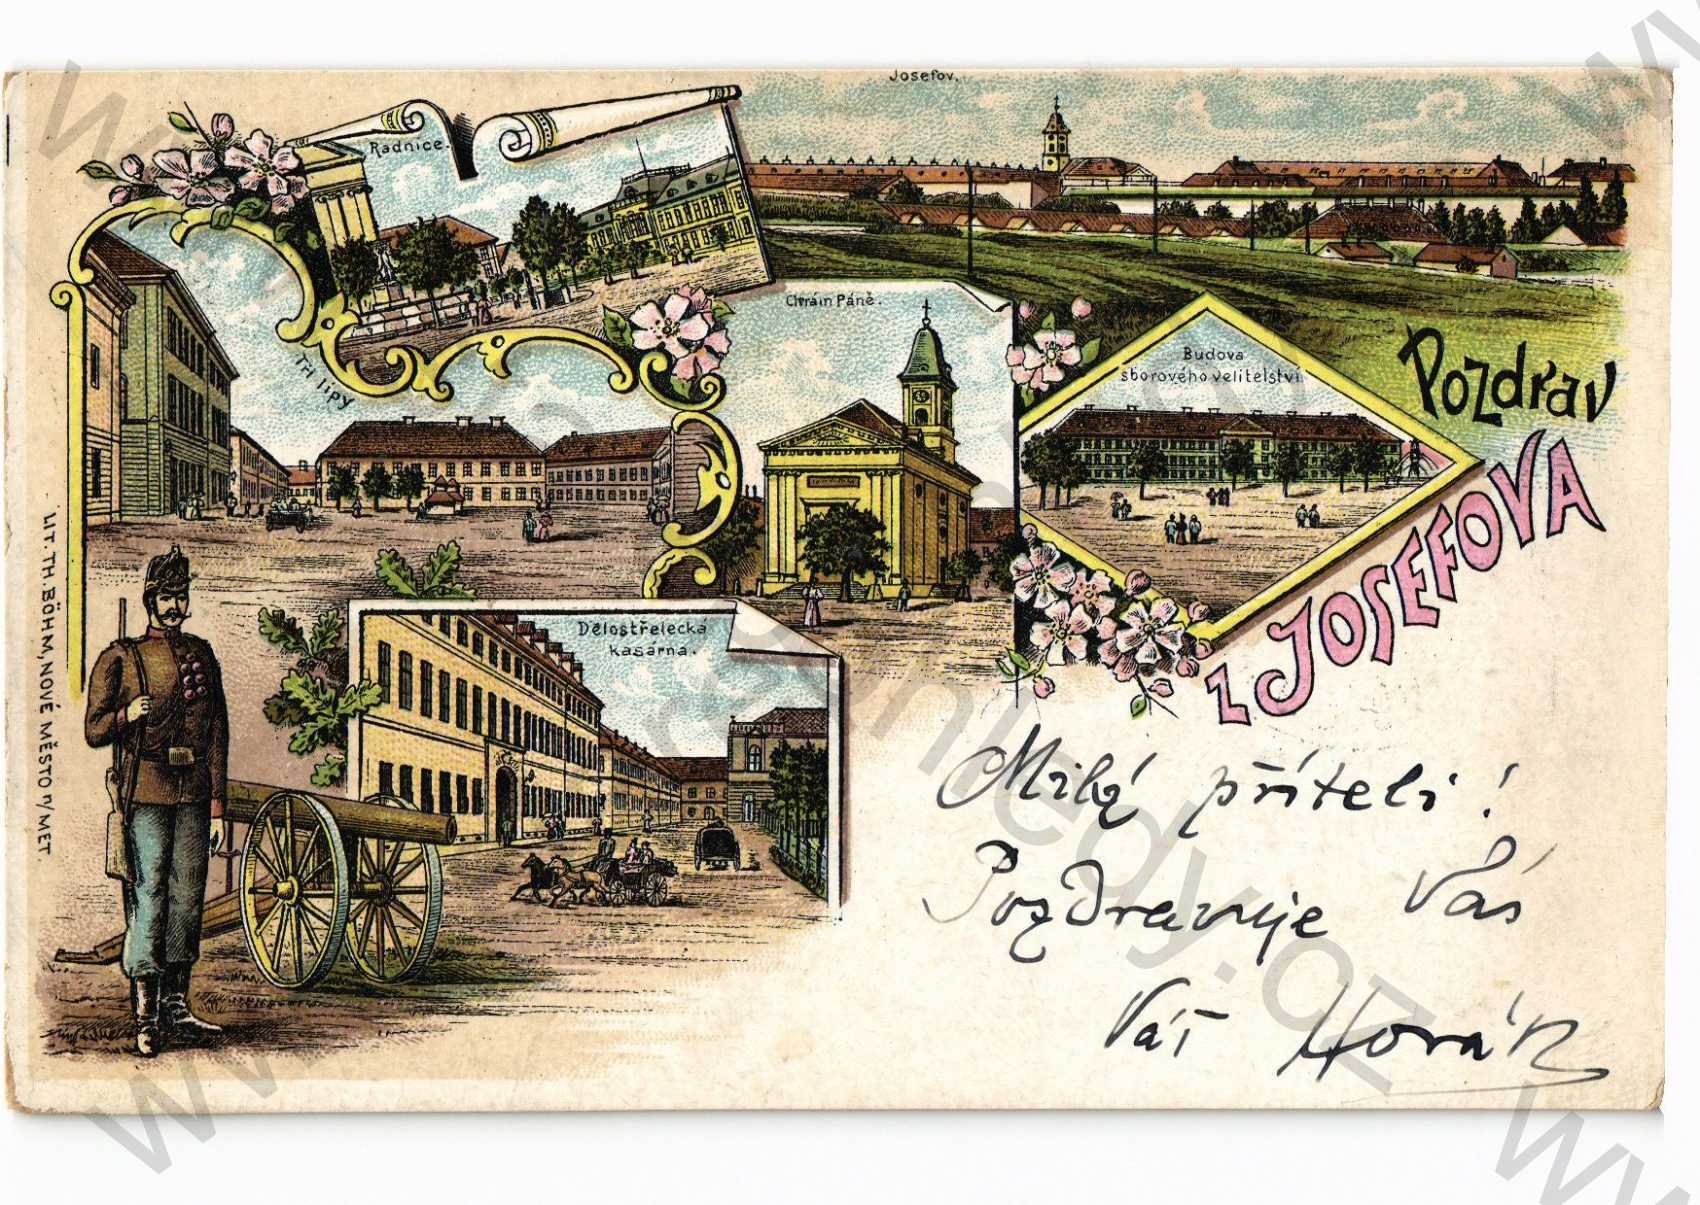 Josefov.
Radnice.
Tři lípy
Chrám Páně.
Budova
sborového velitelství.
Pozdrav
z Josefova
Dělostřelecká
kasárna.
LIT. TH. BÖHM, NOVÉ MĚSTO n/MET.
Milý příteli!
Pozdravuje Vás
Váš Horák
www.pohledy.cz